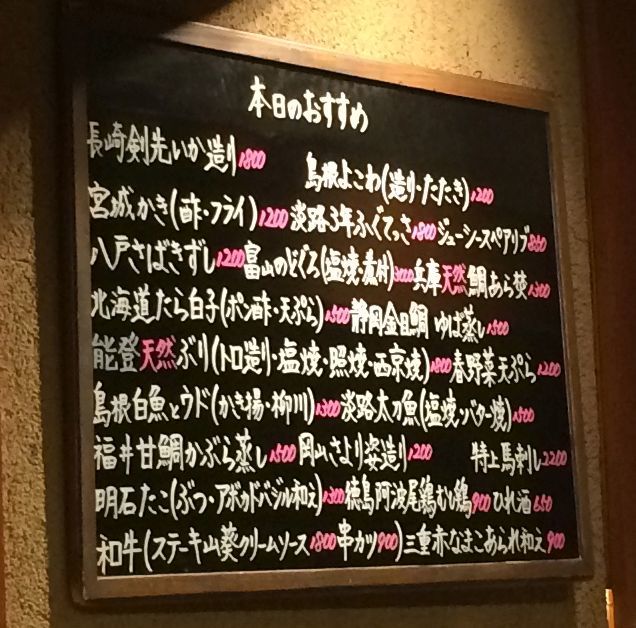 本日のおすすめ
長崎剣先いか造り1800 島根よこわ(造り・たたき)1200
宮城かき(酢・フライ)1200 淡路3年ふぐてっさ1800 ジューシースペアリブ850
八戸さばきずし1200 富山のどぐろ(塩焼・煮付)3000 兵庫天然鯛あら焚1300
北海道たら白子(ポン酢・天ぷら)1500 静岡金目鯛 ゆば蒸し1500
能登天然ぶり(トロ造り・塩焼・照焼・西京焼)1800 春野菜天ぷら1200
島根白魚とウド(かき揚・柳川)1300 淡路太刀魚(塩焼・バター焼)1500
福井甘鯛かぶら蒸し1500 岡山さより姿造り1200 特上馬刺し2200
明石たこ(ぶつ・アボカドバジル和え)1300 徳島阿波尾鶏むし鶏900 ひれ酒650
和牛(ステーキ山葵クリームソース1800 串カツ900) 三重赤なまこあられ和え900